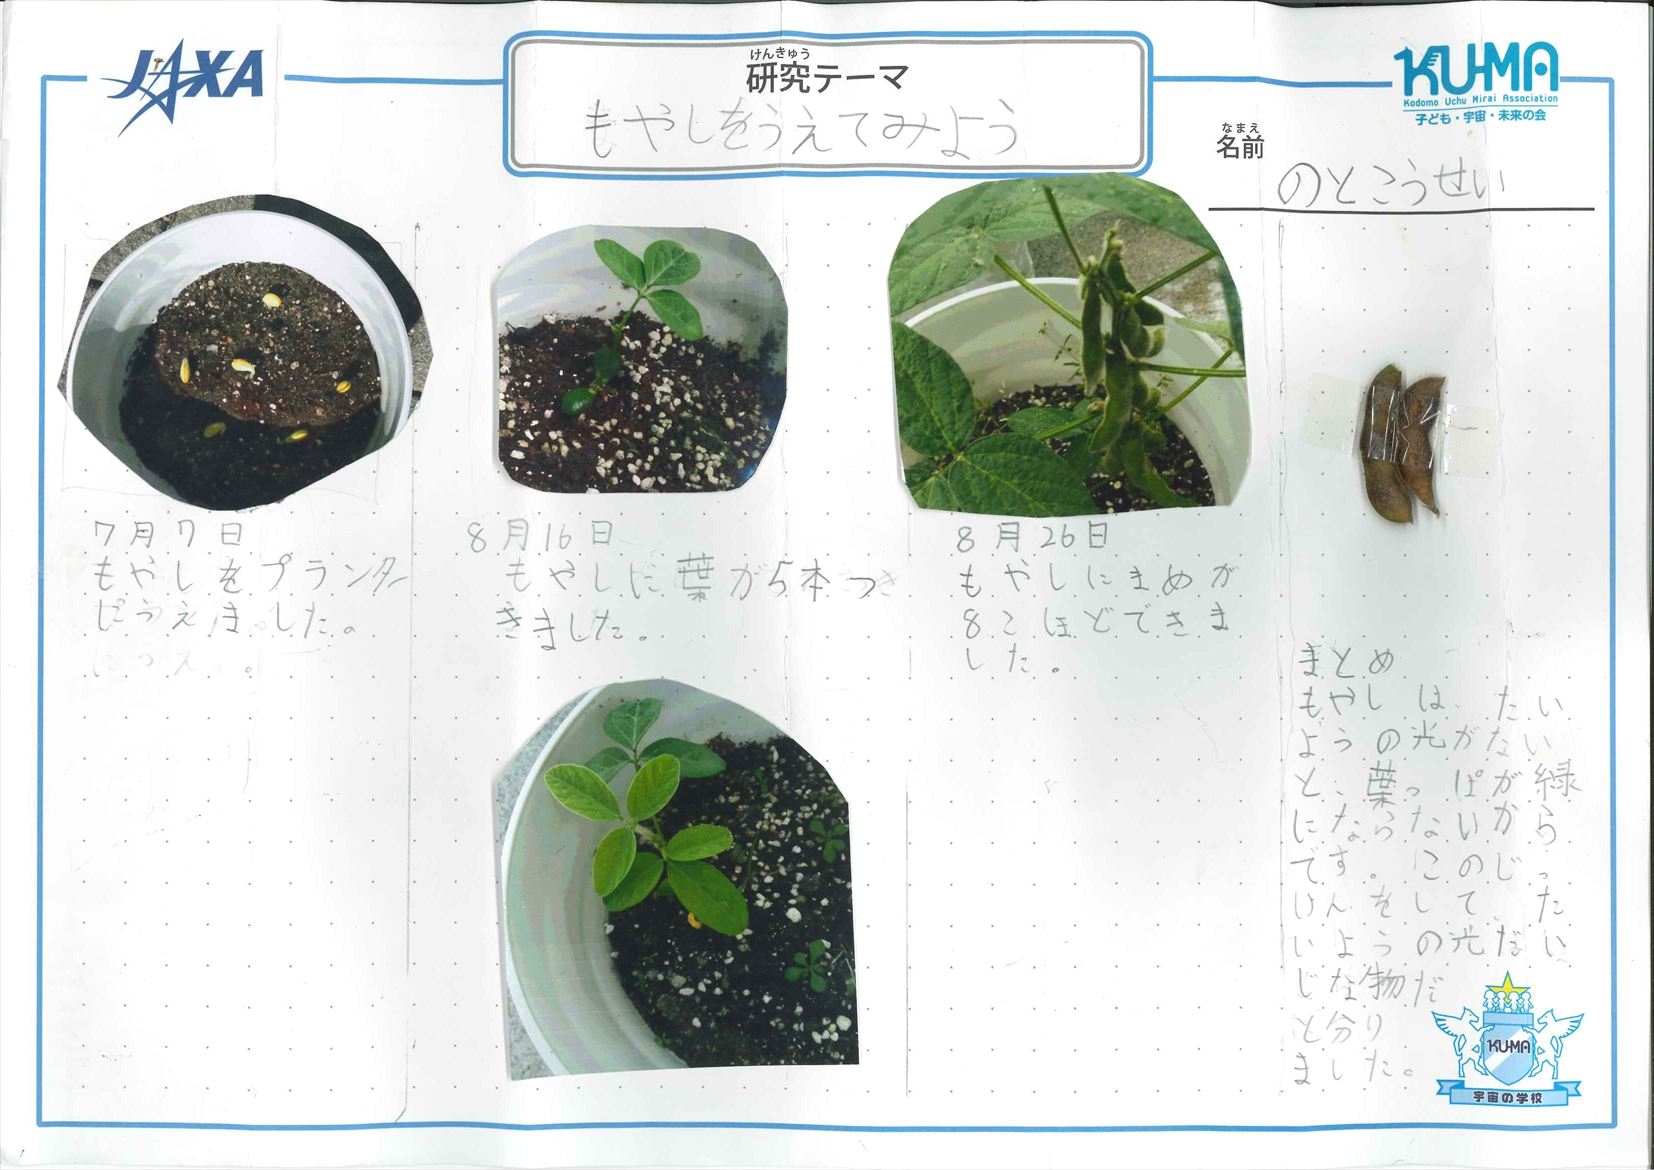 JAXA
けんきゅう
研究テーマ
もやしをうえてみよう
KU-MA
Kodomo Uchu Mirai Association
子ども・宇宙・未来の会
なまえ
名前
のとこうせい
7月7日
もやしをプランター
にうえました。
8月16日
もやしに葉が5本つ
きました。
8月26日
もやしにまめが
8こほどできま
した。
まとめ
もやしは、たい
ようの光がない
と、葉っぱが緑
にならないから
です。このじっ
けんをして、た
いようの光だい
じな物だ
と分り
ました。
KU-MA
宇宙の学校